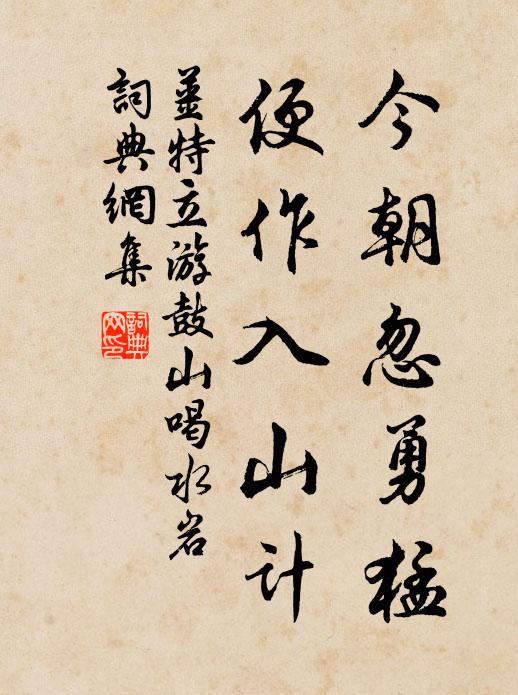 今朝忽勇猛
便作入山计
姜特立游鼓山喝水岩
詞典網集
詞典網印